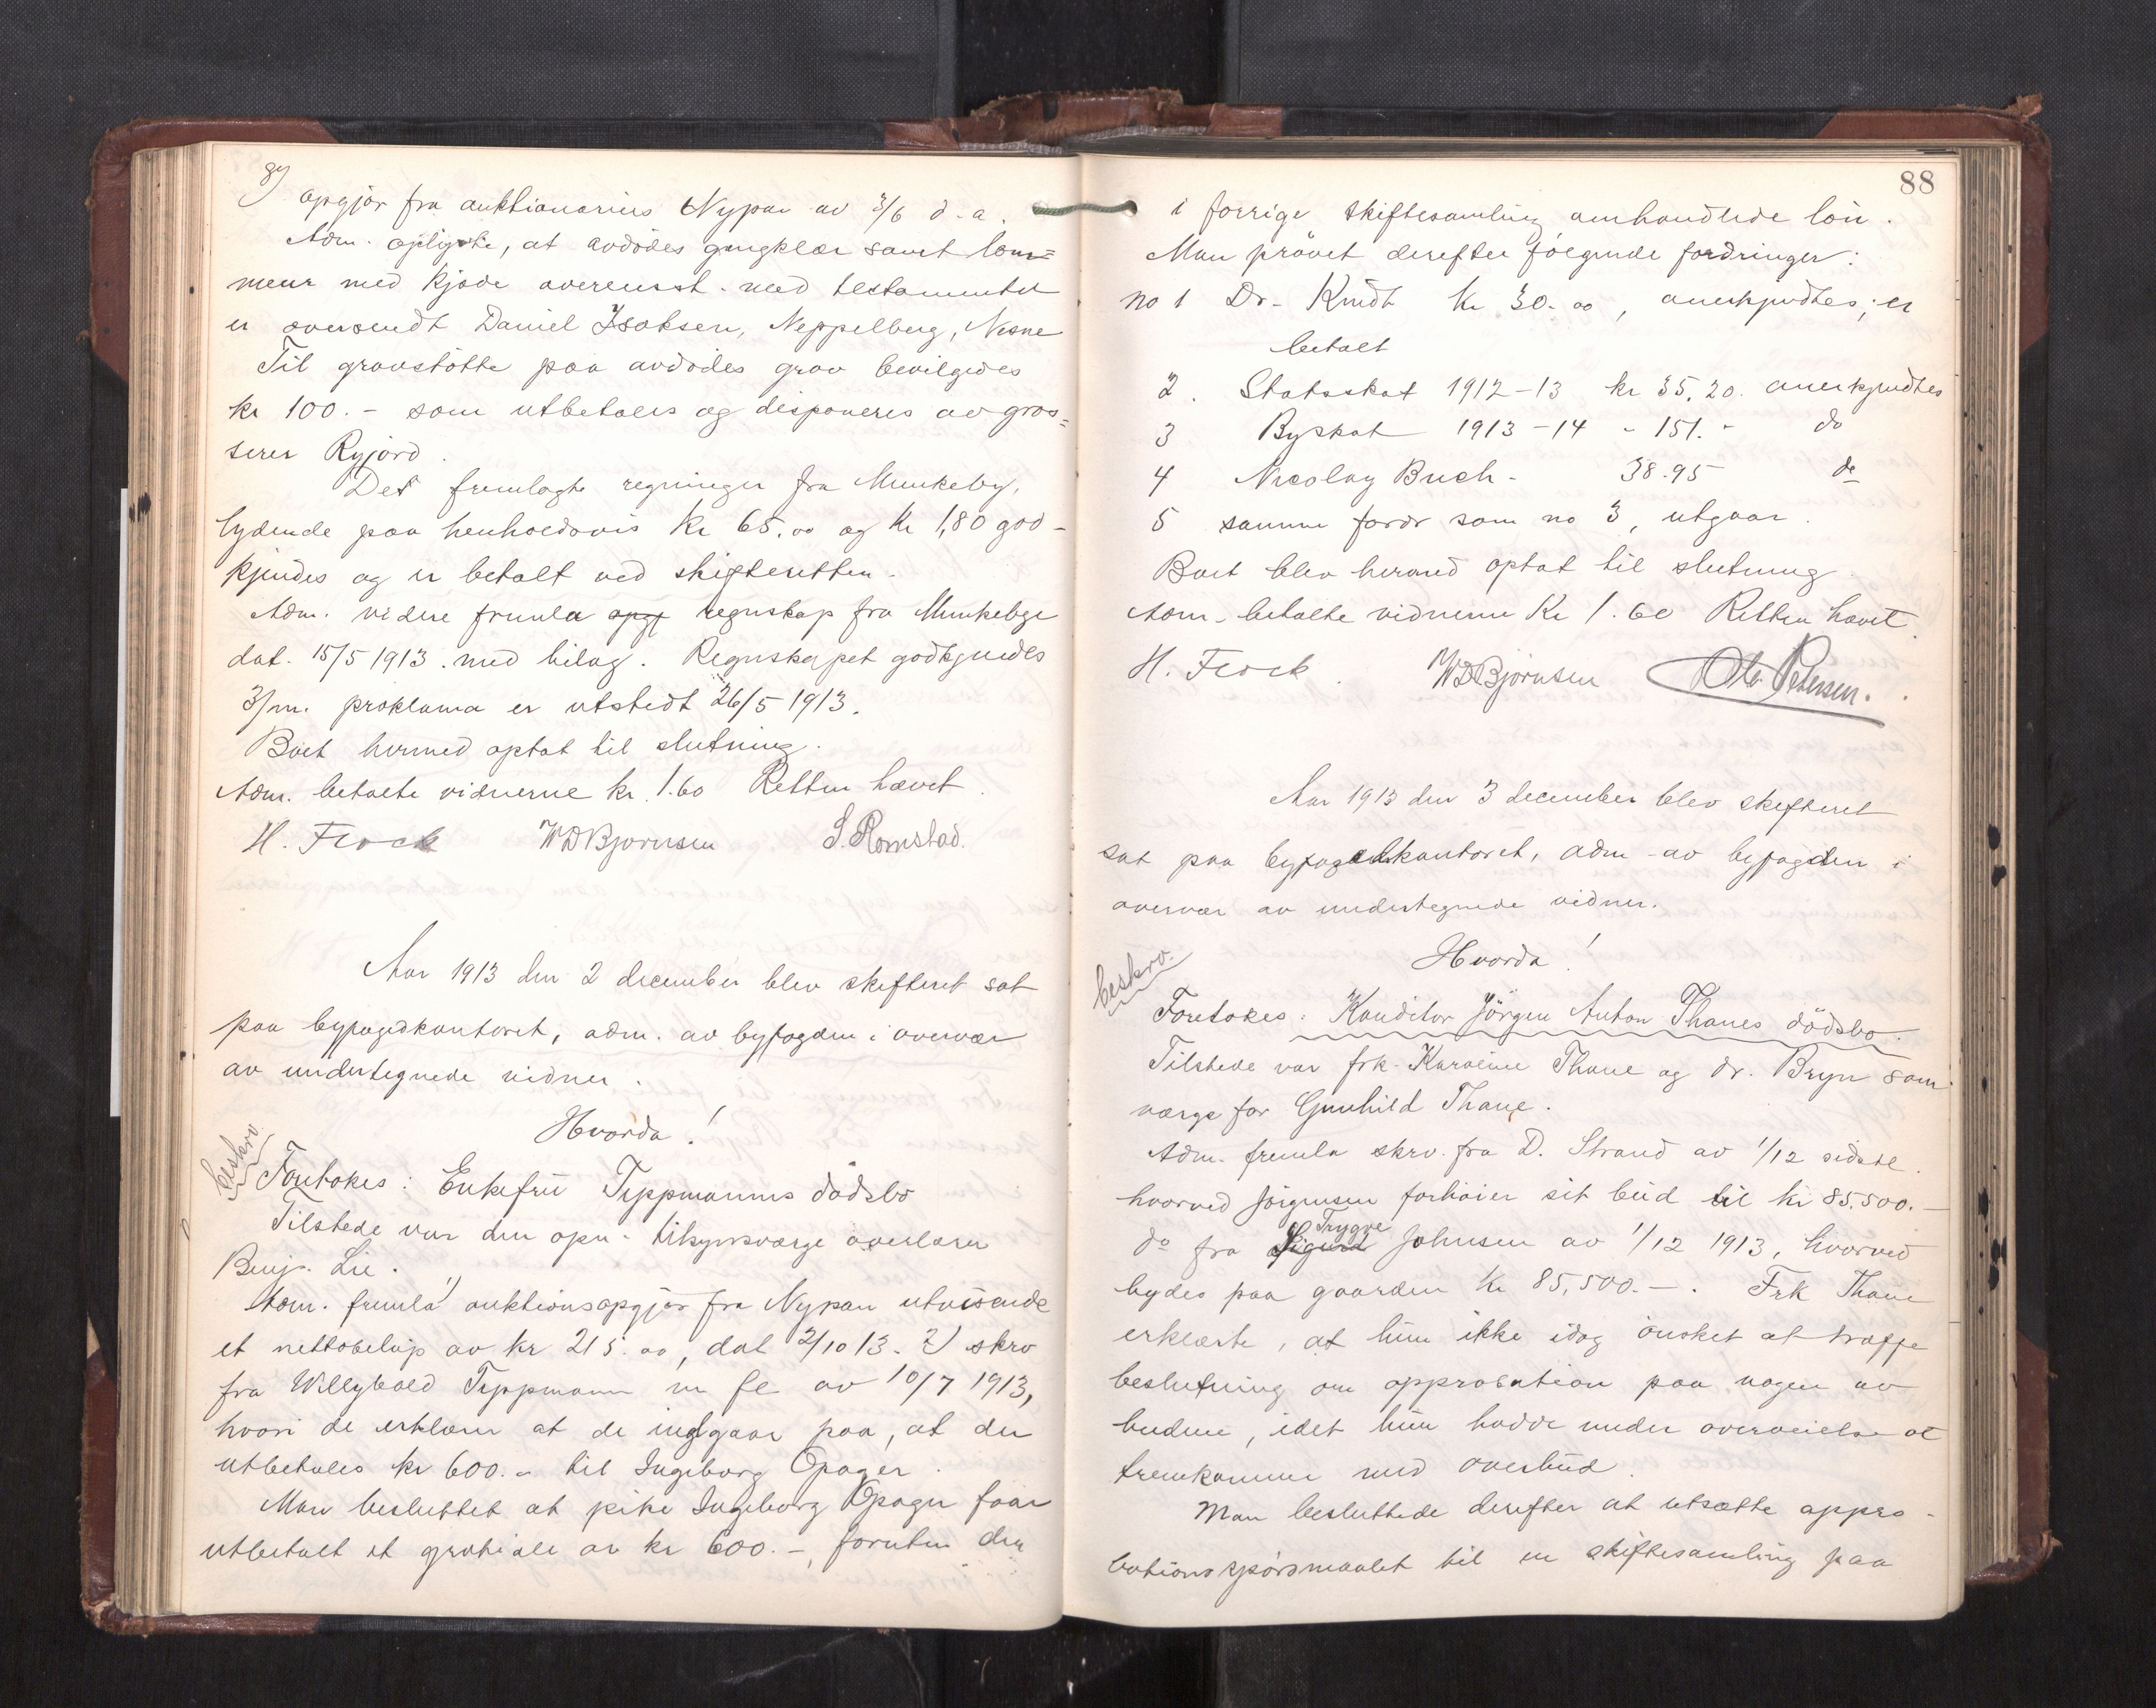 87
opgjør fra auktionarius Nypan av 3/6 d.a.
Adm. oplyste, at avdødes gangklær samt lom=
meur med kjæde overensst. med testamentet
er oversendt Daniel Isaksen, Neppelberg, Nesne
Til gravstøtte paa avdødes grav bevilgedes
kr 100.- som utbetales og disponeres av gros=
serer Ryjord.
Det fremlagte regninger fra Munkeby,
lydende paa henholdsvis kr 65.00 og kr 1,80 god-
kjendes og er betalt ved skifteretten.
Adm. videre fremla opgj regnskap fra Munkeby
dat. 15/5 1913. med bilag. Regnskapet godkjendes
3/m. proklama er utstedt 26/5 1913.
Boet hermed optat til slutning.
Adm. betalte vidnerne kr. 1.60 Retten hævet.
H. Flock WDBjørnsen S. Romstad.
Aar 1913 den 2 december blev skifteret sat
paa byfogedkontoret, adm. av byfogden i overvær
av undertegnede vidner.
Hvorda!
beskrv.
Foretokes: Enkefru Teppmanns dødsbo
Tilstede var den opn. tilsynsværge overlærer
Benj. Lie.
Adm. fremla 1) auktionsopgjør fra Nypan utvisende
et nettobeløp av kr 215.00, dat 2/10 13. 2) skrv
fra Willybald Teppmann m fl av 10/7 1913,
hvori de erklærer at de indgaar paa, at der
utbetales kr 600.- til Ingeborg Opager.
Man besluttet at pike Ingeborg Opager faar
utbetalt et gratiale av kr 600.-, foruten den
88
i forrige skiftesamling omhandlede løn.
Man prøvet derefter følgende fordringer:
no 1 Dr. Kindt kr 30.00, anerkjendtes; er
betalt
2. Statsskat 1912-13 kr 35,20. anerkjendtes
3 Byskat 1913-14 - 151.- do
4 Nicolay Buch - 38.95 do
5 samme fordr som no 3, utgaar.
Boet blev hermed optat til slutning
Adm. betalte vidnerne kr 1.60 Retten hævet.
H. Flock. WDBjørnsen Ole Petersen.
Aar 1913 den 3 december blev skifteret
sat paa byfogedkontoret, adm. av byfogden i
overvær av undertegnede vidner.
Hvorda!
beskrv.
Foretokes: Konditor Jørgen Anton Thanes dødsbo.
Tilstede var frk. Karoline Thane og dr. Bryn som
værge for Gunhild Thane.
Adm. fremla skrv. fra D. Strand av 1/12 sidstl.
hvorved Jørgensen forhøier sit bud til kr 85.500.-
do fra Sigurd Trygve Johnsen av 1/12 1913, hvorved
bydes paa gaarden kr 85,500.-. Frk Thane
erklærte, at hun ikke idag ønsket at træffe
beslutning om approbation paa nogen av
budene, idet hun hadde under overveielse at
fremkomme med overbud.
Man besluttede derefter at utsætte appro-
bationsspørsmaalet til en skiftesamling paa